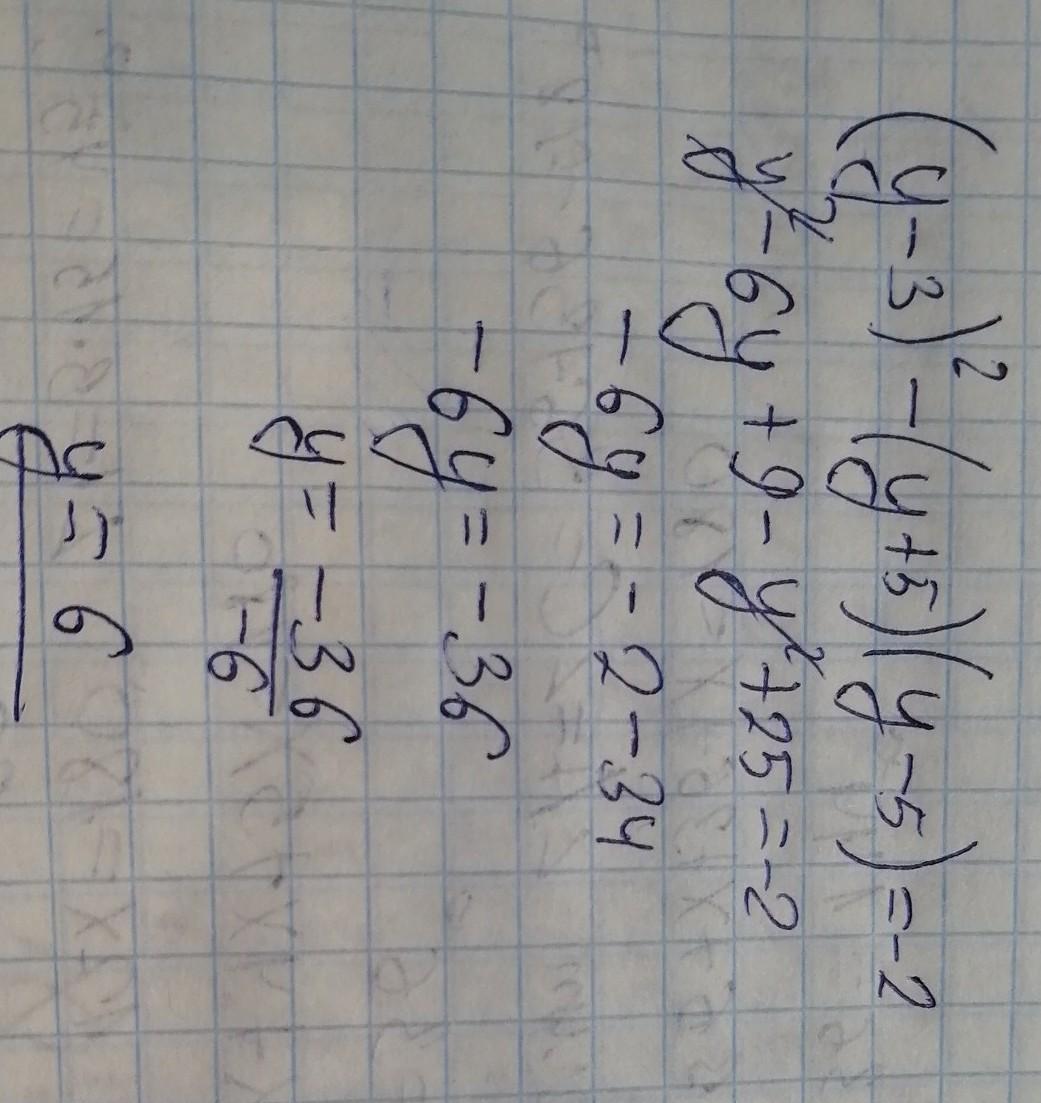 (y-3)² - (y+5)(y-5) = -2
y² - 6y + 9 - y² + 25 = -2
- 6y = - 2 - 34
- 6y = - 36
y = -36/-6
y = 6